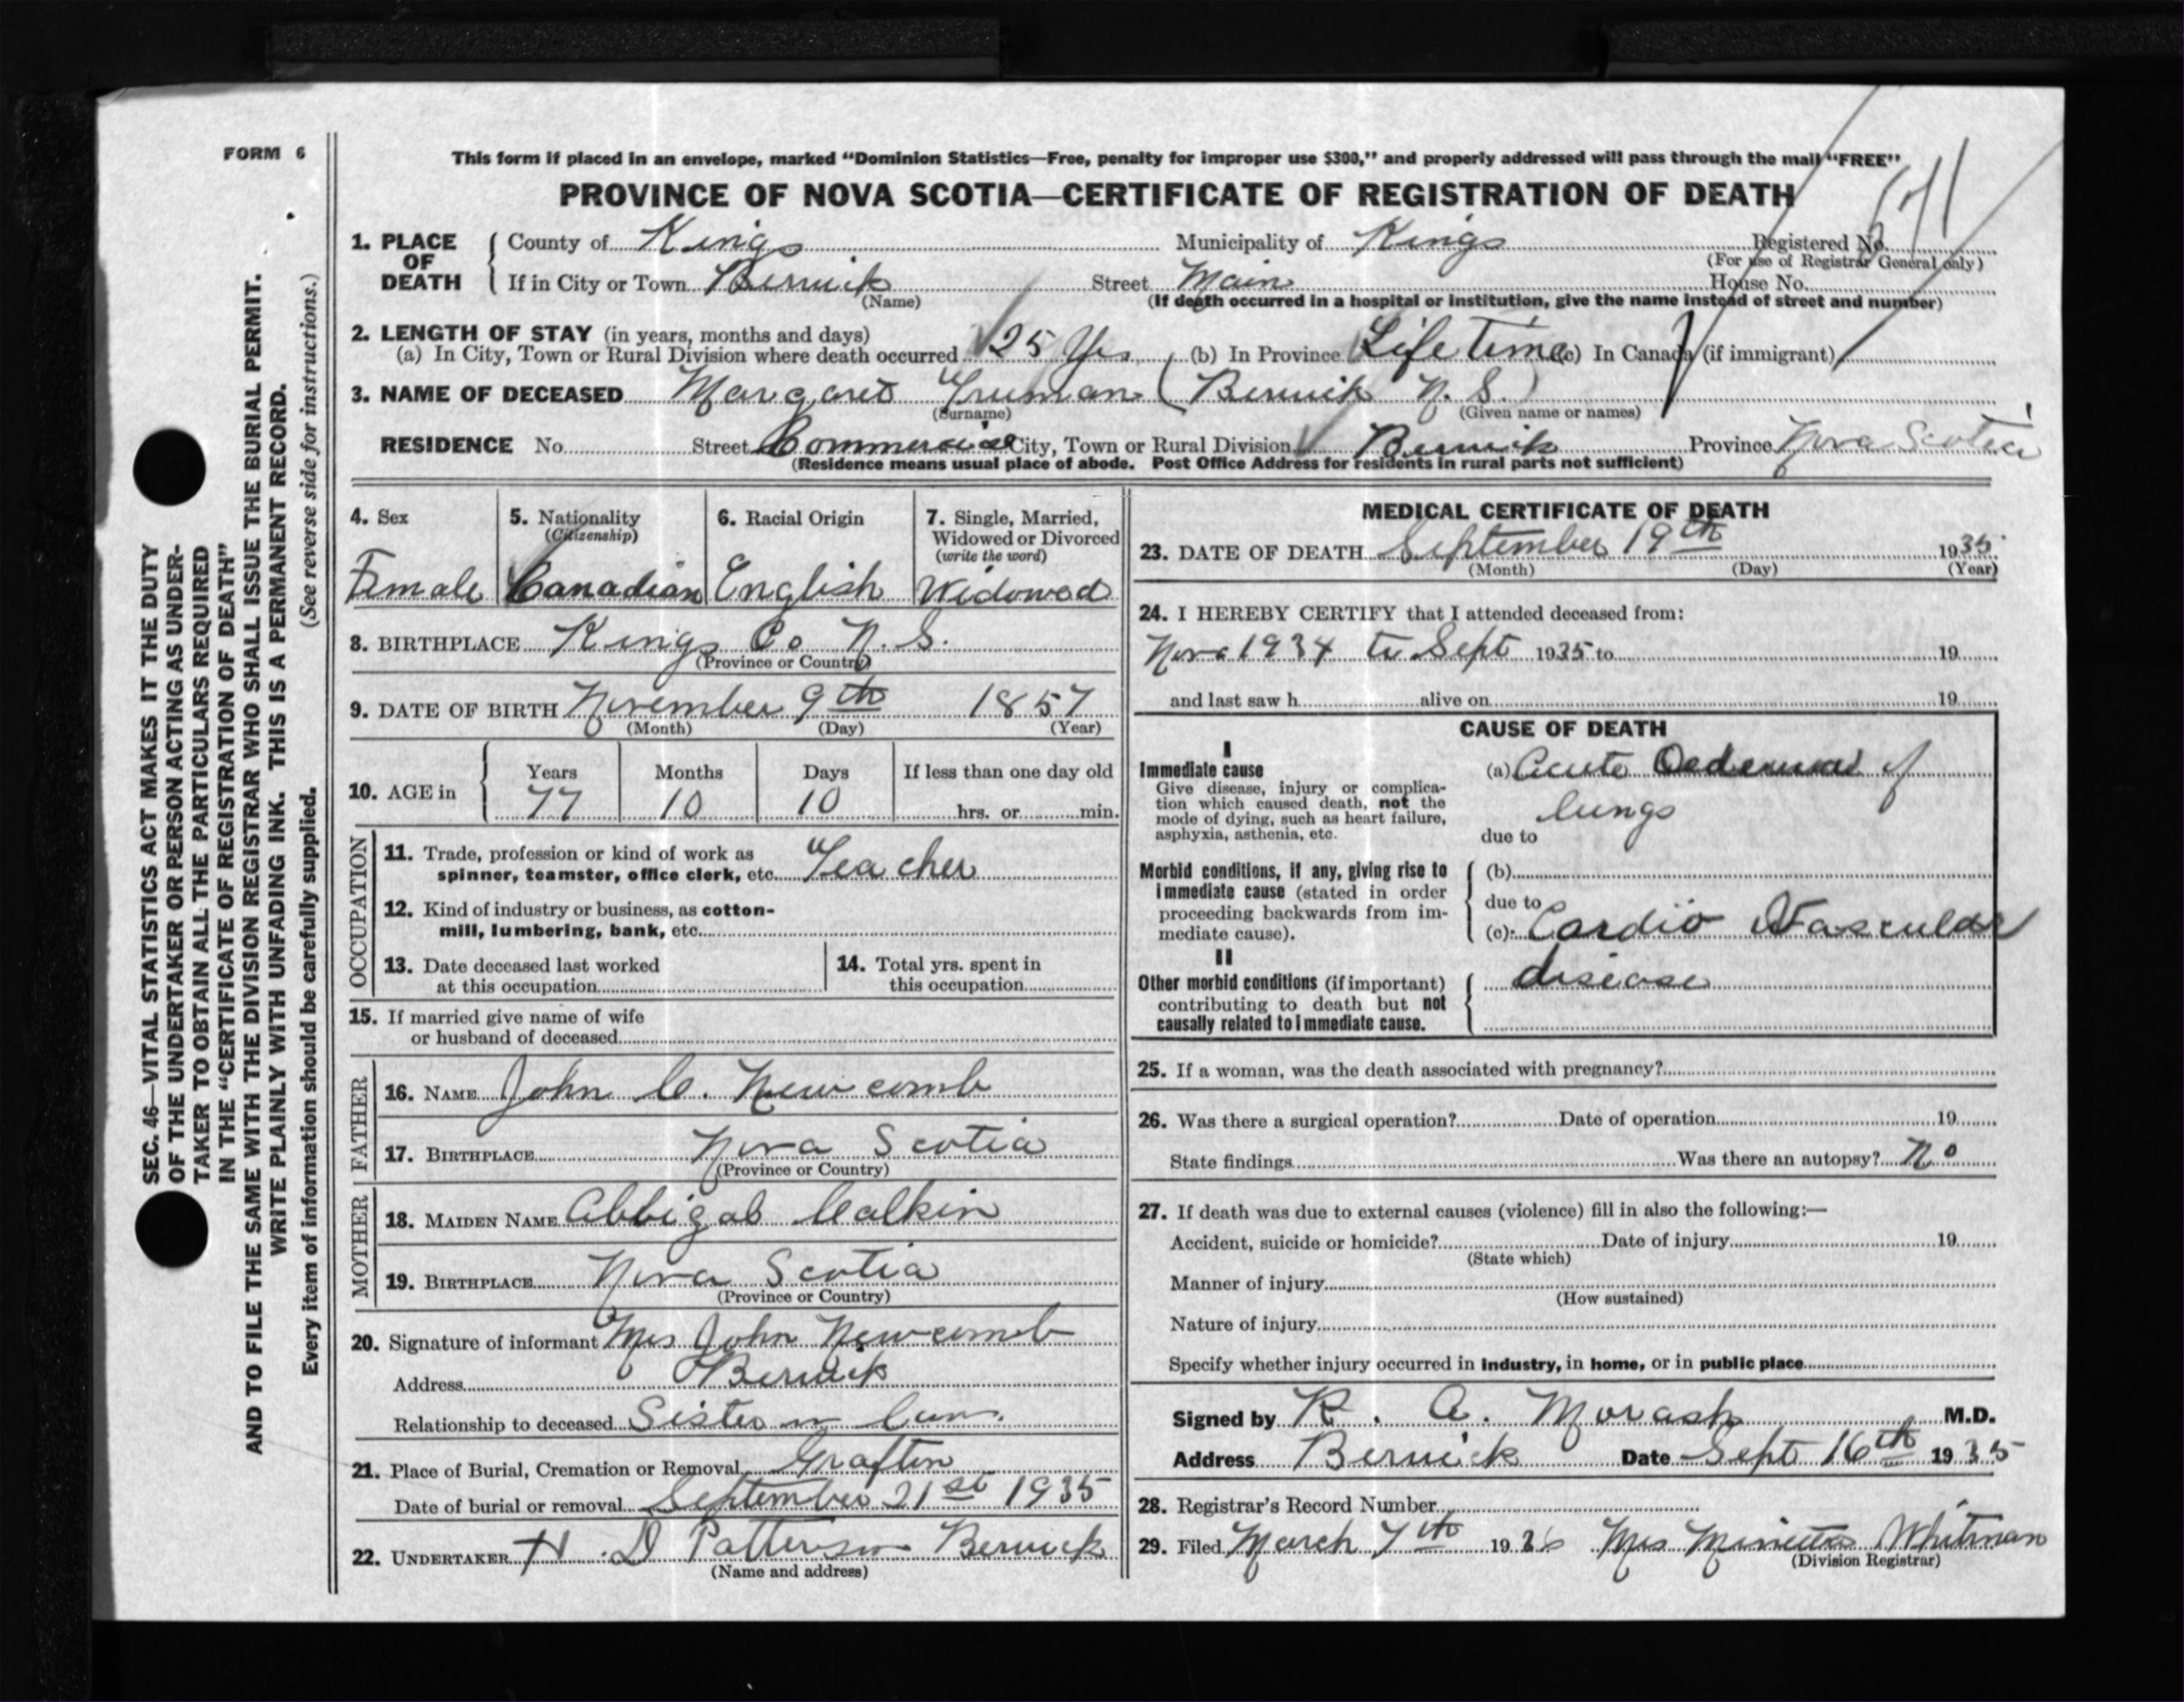 FORM 6
This form if placed in an envelope, marked "Dominion Statistics—Free, penalty for improper use $300," and properly addressed will pass through the mail "FREE"
PROVINCE OF NOVA SCOTIA—CERTIFICATE OF REGISTRATION OF DEATH
1. PLACE OF DEATH County of Kings Municipality of Kings Registered No.
(For use of Registrar General only)
If in City or Town Berwick Street Main House No.
(Name) (If death occurred in a hospital or institution, give the name instead of street and number)
2. LENGTH OF STAY (in years, months and days)
(a) In City, Town or Rural Division where death occurred 25 Yrs (b) In Province Life Time (c) In Canada (if immigrant)
3. NAME OF DECEASED Margaret Truman (Berwick N. S.)
(Surname) (Given name or names)
RESIDENCE No. Street Commercial City, Town or Rural Division Berwick Province Nova Scotia
(Residence means usual place of abode. Post Office Address for residents in rural parts not sufficient)
4. Sex 5. Nationality (Citizenship) 6. Racial Origin 7. Single, Married, Widowed or Divorced (write the word)
Female Canadian English Widowed
8. BIRTHPLACE Kings Co N. S.
(Province or Country)
9. DATE OF BIRTH November 9th 1857
(Month) (Day) (Year)
10. AGE in Years Months Days If less than one day old
77 10 10 hrs. or min.
OCCUPATION
11. Trade, profession or kind of work as
spinner, teamster, office clerk, etc. Teacher
12. Kind of industry or business, as cotton-
mill, lumbering, bank, etc.
13. Date deceased last worked
at this occupation
14. Total yrs. spent in
this occupation
15. If married give name of wife
or husband of deceased
FATHER
16. NAME John C. Newcomb
17. BIRTHPLACE Nova Scotia
(Province or Country)
MOTHER
18. MAIDEN NAME Abbigal Calkin
19. BIRTHPLACE Nova Scotia
(Province or Country)
20. Signature of informant Mrs John Newcomb
Address Berwick
Relationship to deceased Sister in law.
21. Place of Burial, Cremation or Removal Grafton
Date of burial or removal September 21st 1935
22. UNDERTAKER H. D Patterson Berwick
(Name and address)
MEDICAL CERTIFICATE OF DEATH
23. DATE OF DEATH September 19th 1935
(Month) (Day) (Year)
24. I HEREBY CERTIFY that I attended deceased from:
Nov 1934 to Sept 1935 to 19
and last saw h alive on 19
CAUSE OF DEATH
I
Immediate cause
Give disease, injury or complica-
tion which caused death, not the
mode of dying, such as heart failure,
asphyxia, asthenia, etc.
(a) Acute Oedema of
lungs
due to
Morbid conditions, if any, giving rise to
immediate cause (stated in order
proceeding backwards from im-
mediate cause).
(b)
due to
(c) Cardio Vascular
II
Other morbid conditions (if important)
contributing to death but not
causally related to immediate cause.
disease
25. If a woman, was the death associated with pregnancy?
26. Was there a surgical operation? Date of operation 19
State findings Was there an autopsy? No
27. If death was due to external causes (violence) fill in also the following:—
Accident, suicide or homicide? Date of injury 19
(State which)
Manner of injury
(How sustained)
Nature of injury
Specify whether injury occurred in industry, in home, or in public place
Signed by R. A. Morash M.D.
Address Berwick Date Sept 16th 1935
28. Registrar's Record Number
29. Filed March 7th 1936 Mrs Whitman
(Division Registrar)
SEC. 46—VITAL STATISTICS ACT MAKES IT THE DUTY
OF THE UNDERTAKER OR PERSON ACTING AS UNDER-
TAKER TO OBTAIN ALL THE PARTICULARS REQUIRED
IN THE "CERTIFICATE OF REGISTRATION OF DEATH"
AND TO FILE THE SAME WITH THE DIVISION REGISTRAR WHO SHALL ISSUE THE BURIAL PERMIT.
WRITE PLAINLY WITH UNFADING INK. THIS IS A PERMANENT RECORD.
Every item of information should be carefully supplied. (See reverse side for instructions.)